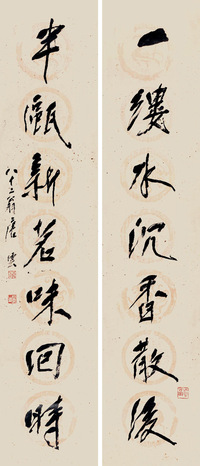 一縷水沉香散後
半甌新茗味回時
八十二翁唐雲